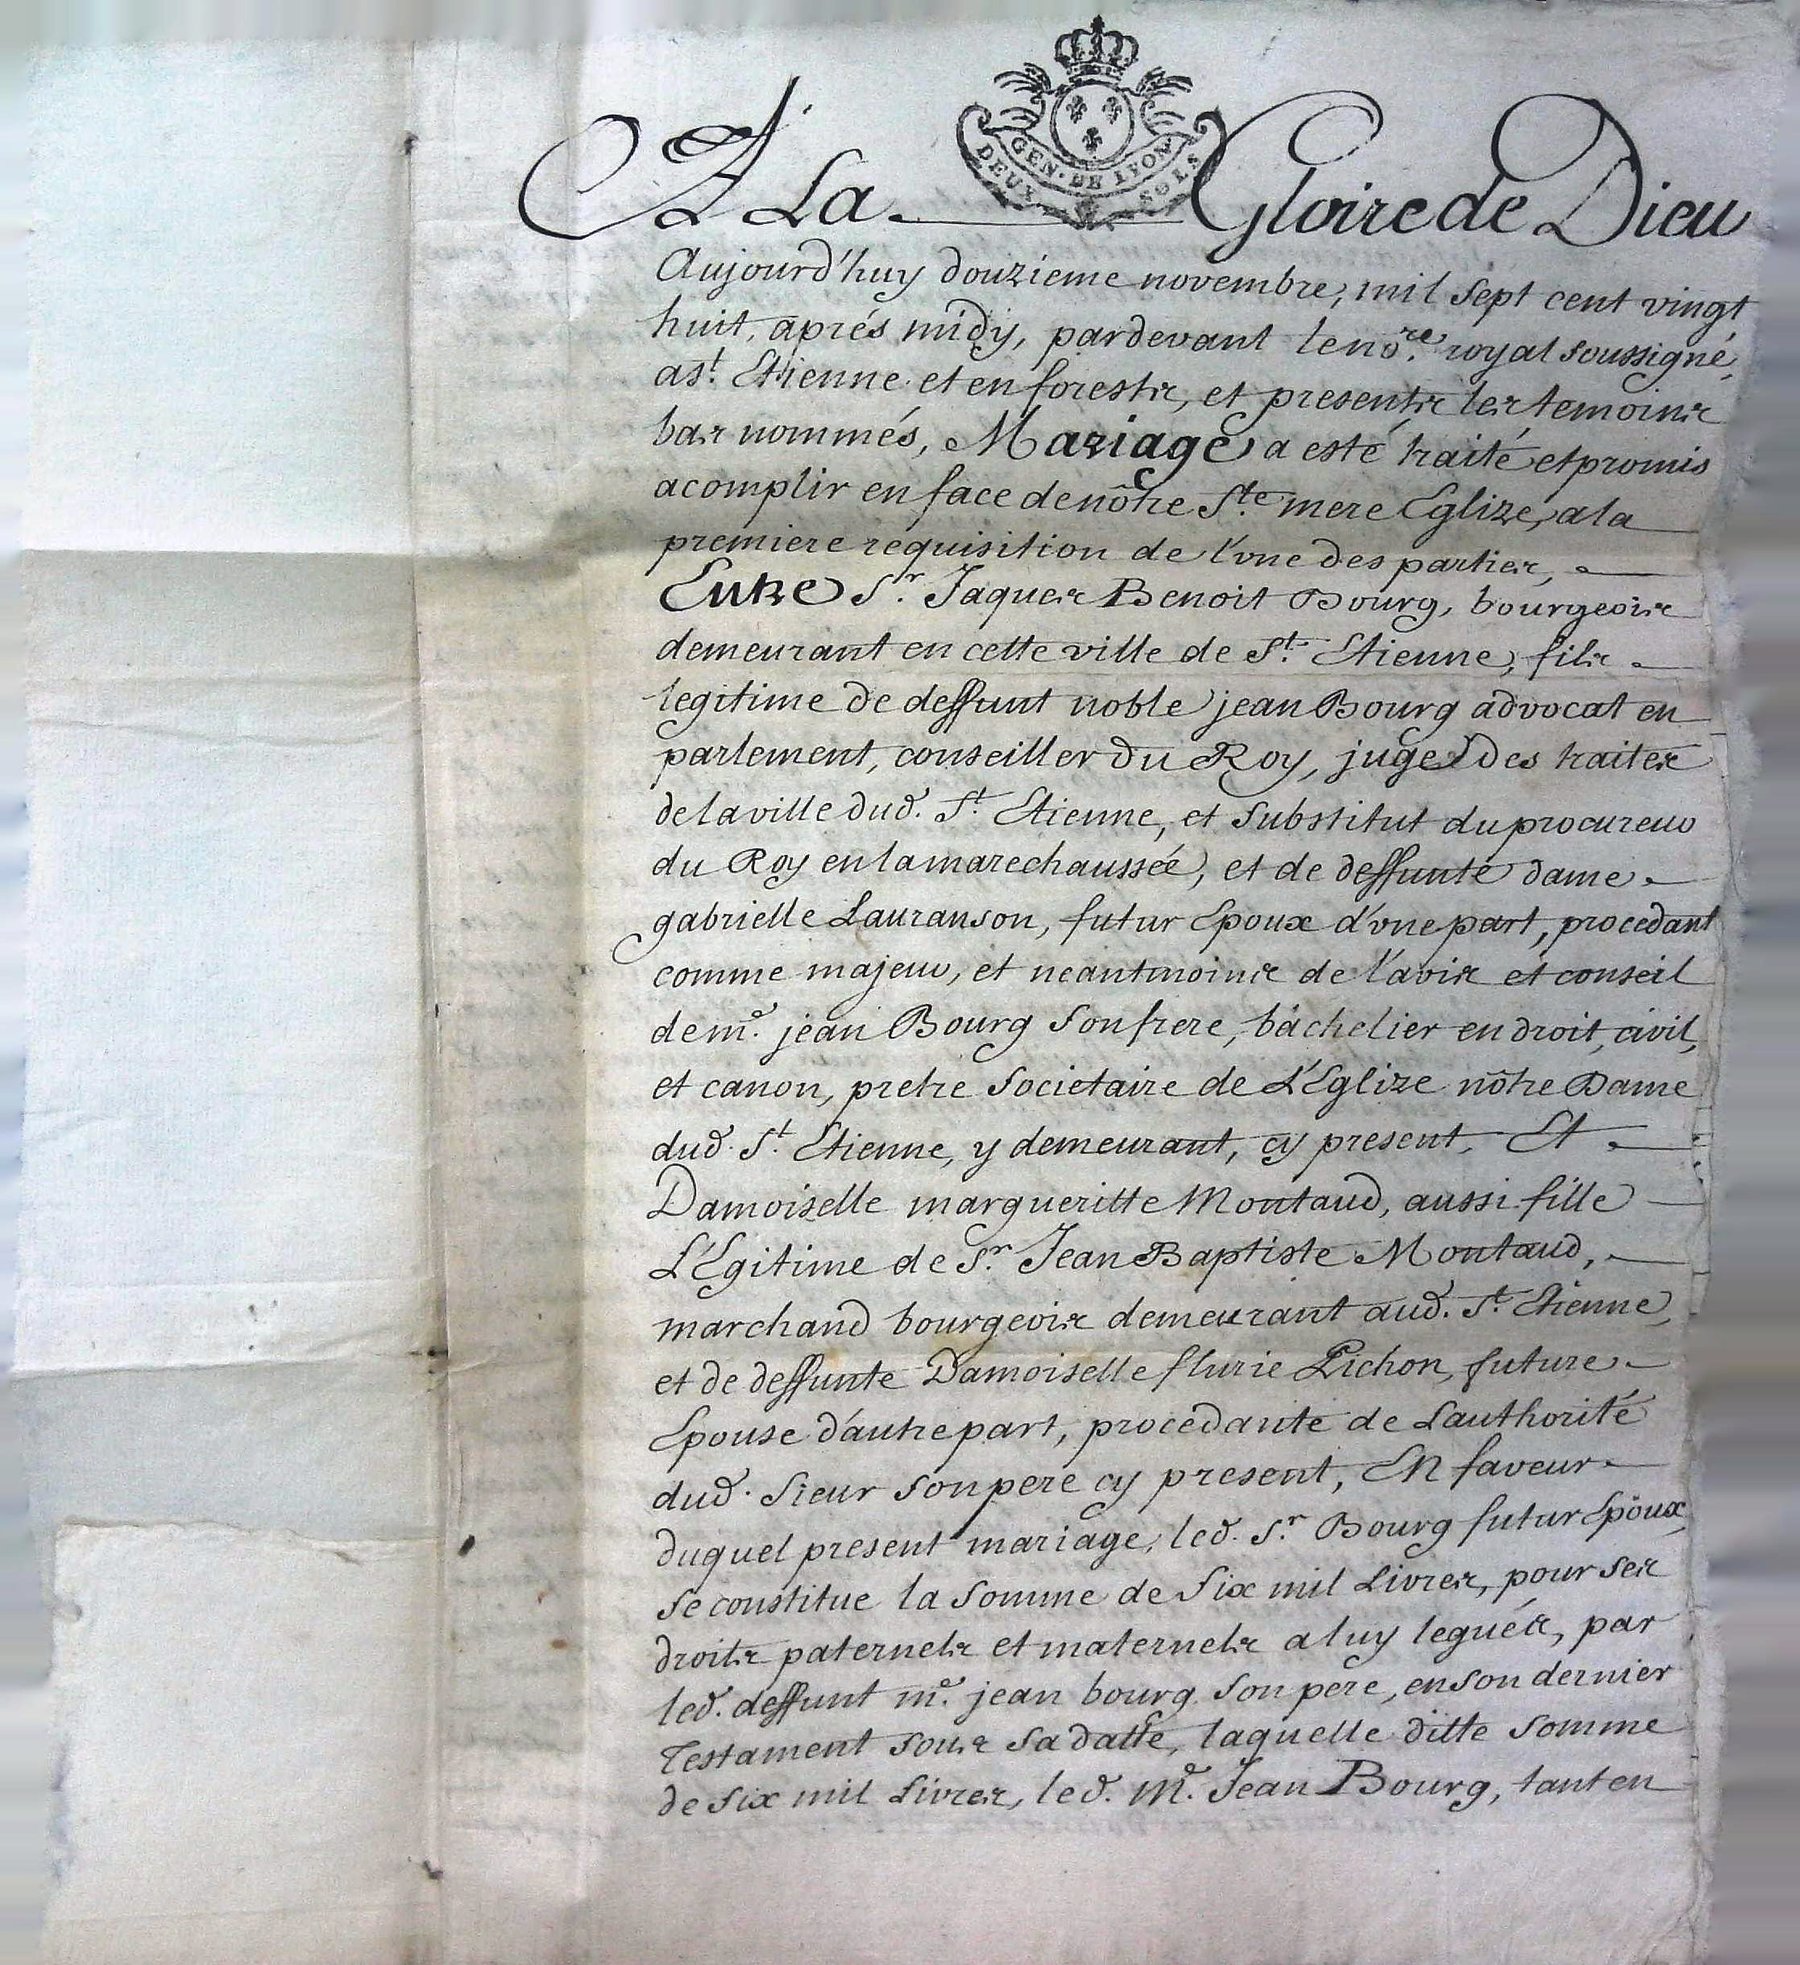 GEN. DE LYON
DEUX SOLS
A La Gloire de Dieu
Aujourd'huy douzieme novembre, mil sept cent vingt
huit, aprés midy, pardevant le no.re royal soussigné,
a st. Etienne et en forests, et presents les temoins
bas nommés, Mariage a esté traité et promis
acomplir en face de nôtre S.te mere Eglize, a la
premiere requisition de l'vne des parties,
Entre S.r Jaques Benoit Bourg, bourgeois
demeurant en cette ville de S.t Etienne, fils
legitime de deffunt noble jean Bourg advocat en
parlement, conseiller du Roy, juge des traites
de la ville dud. S.t Etienne, et substitut du procureur
du Roy en la marechaussée, et de deffunte dame
gabrielle Lauranson, futur Epoux d'vne part, procedant
comme majeur, et neantmoins de l'avis et conseil
de m.e jean Bourg son frere, bâchelier en droit, civil,
et canon, pretre societaire de L'Eglize nôtre Dame
dud. S.t Etienne, y demeurant, cy present, Et
Damoiselle margueritte Montaud, aussi fille
L'Egitime de S.r Jean Baptiste Montaud,
marchand bourgeois demeurant aud. S.t Etienne,
et de deffunte Damoiselle flurie Pichon, future
Epouse d'autre part, procedante de Lauthorité
dud. Sieur son pere cy present, En faveur
duquel present mariage, led. S.r Bourg futur Epoux,
se constitue la somme de six mil Livres, pour ses
droits paternels et maternels a luy legués, par
led. deffunt m.e jean bourg son pere, en son dernier
Testament sous sa datte, laquelle ditte somme
de six mil Livres, led. M.e Jean Bourg, tant en